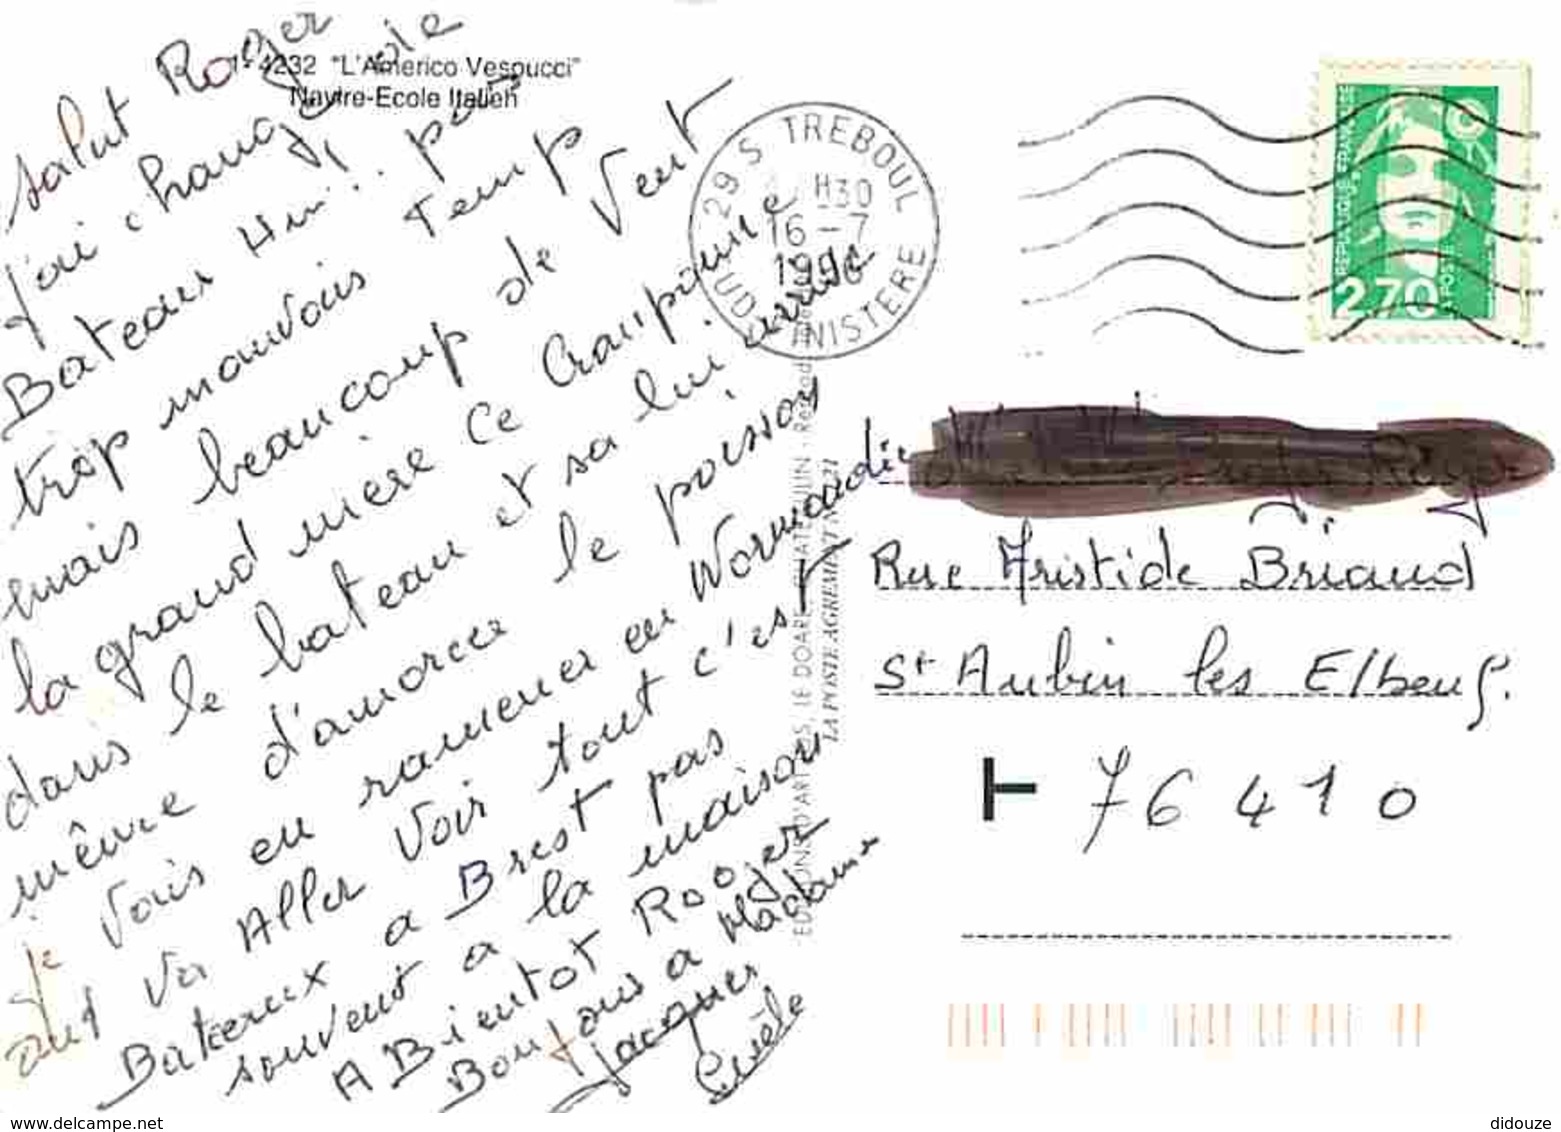 1-4232 "L'Americo Vespucci"
Navire-Ecole Italien
Salut Roger
j'ai changé de
Bateau Hin!.. pas
trop mauvais Temp
mais beaucoup de Vent
la grand mère Ce Crampomne
dans le bateau et sa lui arrive
même d'amorcer le poisson
je vais en ramener en Normandie
ont va Aller Voir tout c'est
Bateaux a Brest pas
souvent a la maison
A Bientot Roger
Bonjour a Madame
Jacques
29 S TREBOUL
H30
16-7
199
FINISTERE
REPUBLIQUE FRANCAISE
2,70
POSTE
EDITIONS D'ART JOS, LE DOARE, CHATEAULIN
LA POSTE AGREMENT N° 21
Rue Aristide Briand
St Aubin les Elbeuf.
76410
www.delcampe.net
didouze